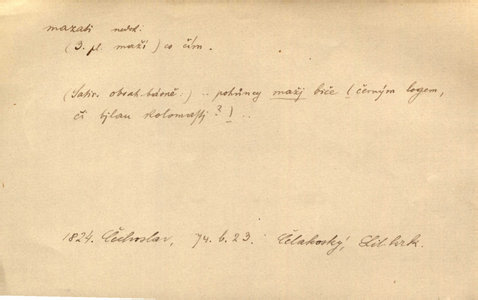 mazati nedok.
(3. pl. maží) co čím.
(Satir. obsah. básně:) .. pohůncy mažj biče (černým logem,
či bjlau kolomastj?) ..
1824. Čechoslav, 74. b. 23. Čelakovský, Lit. krk.